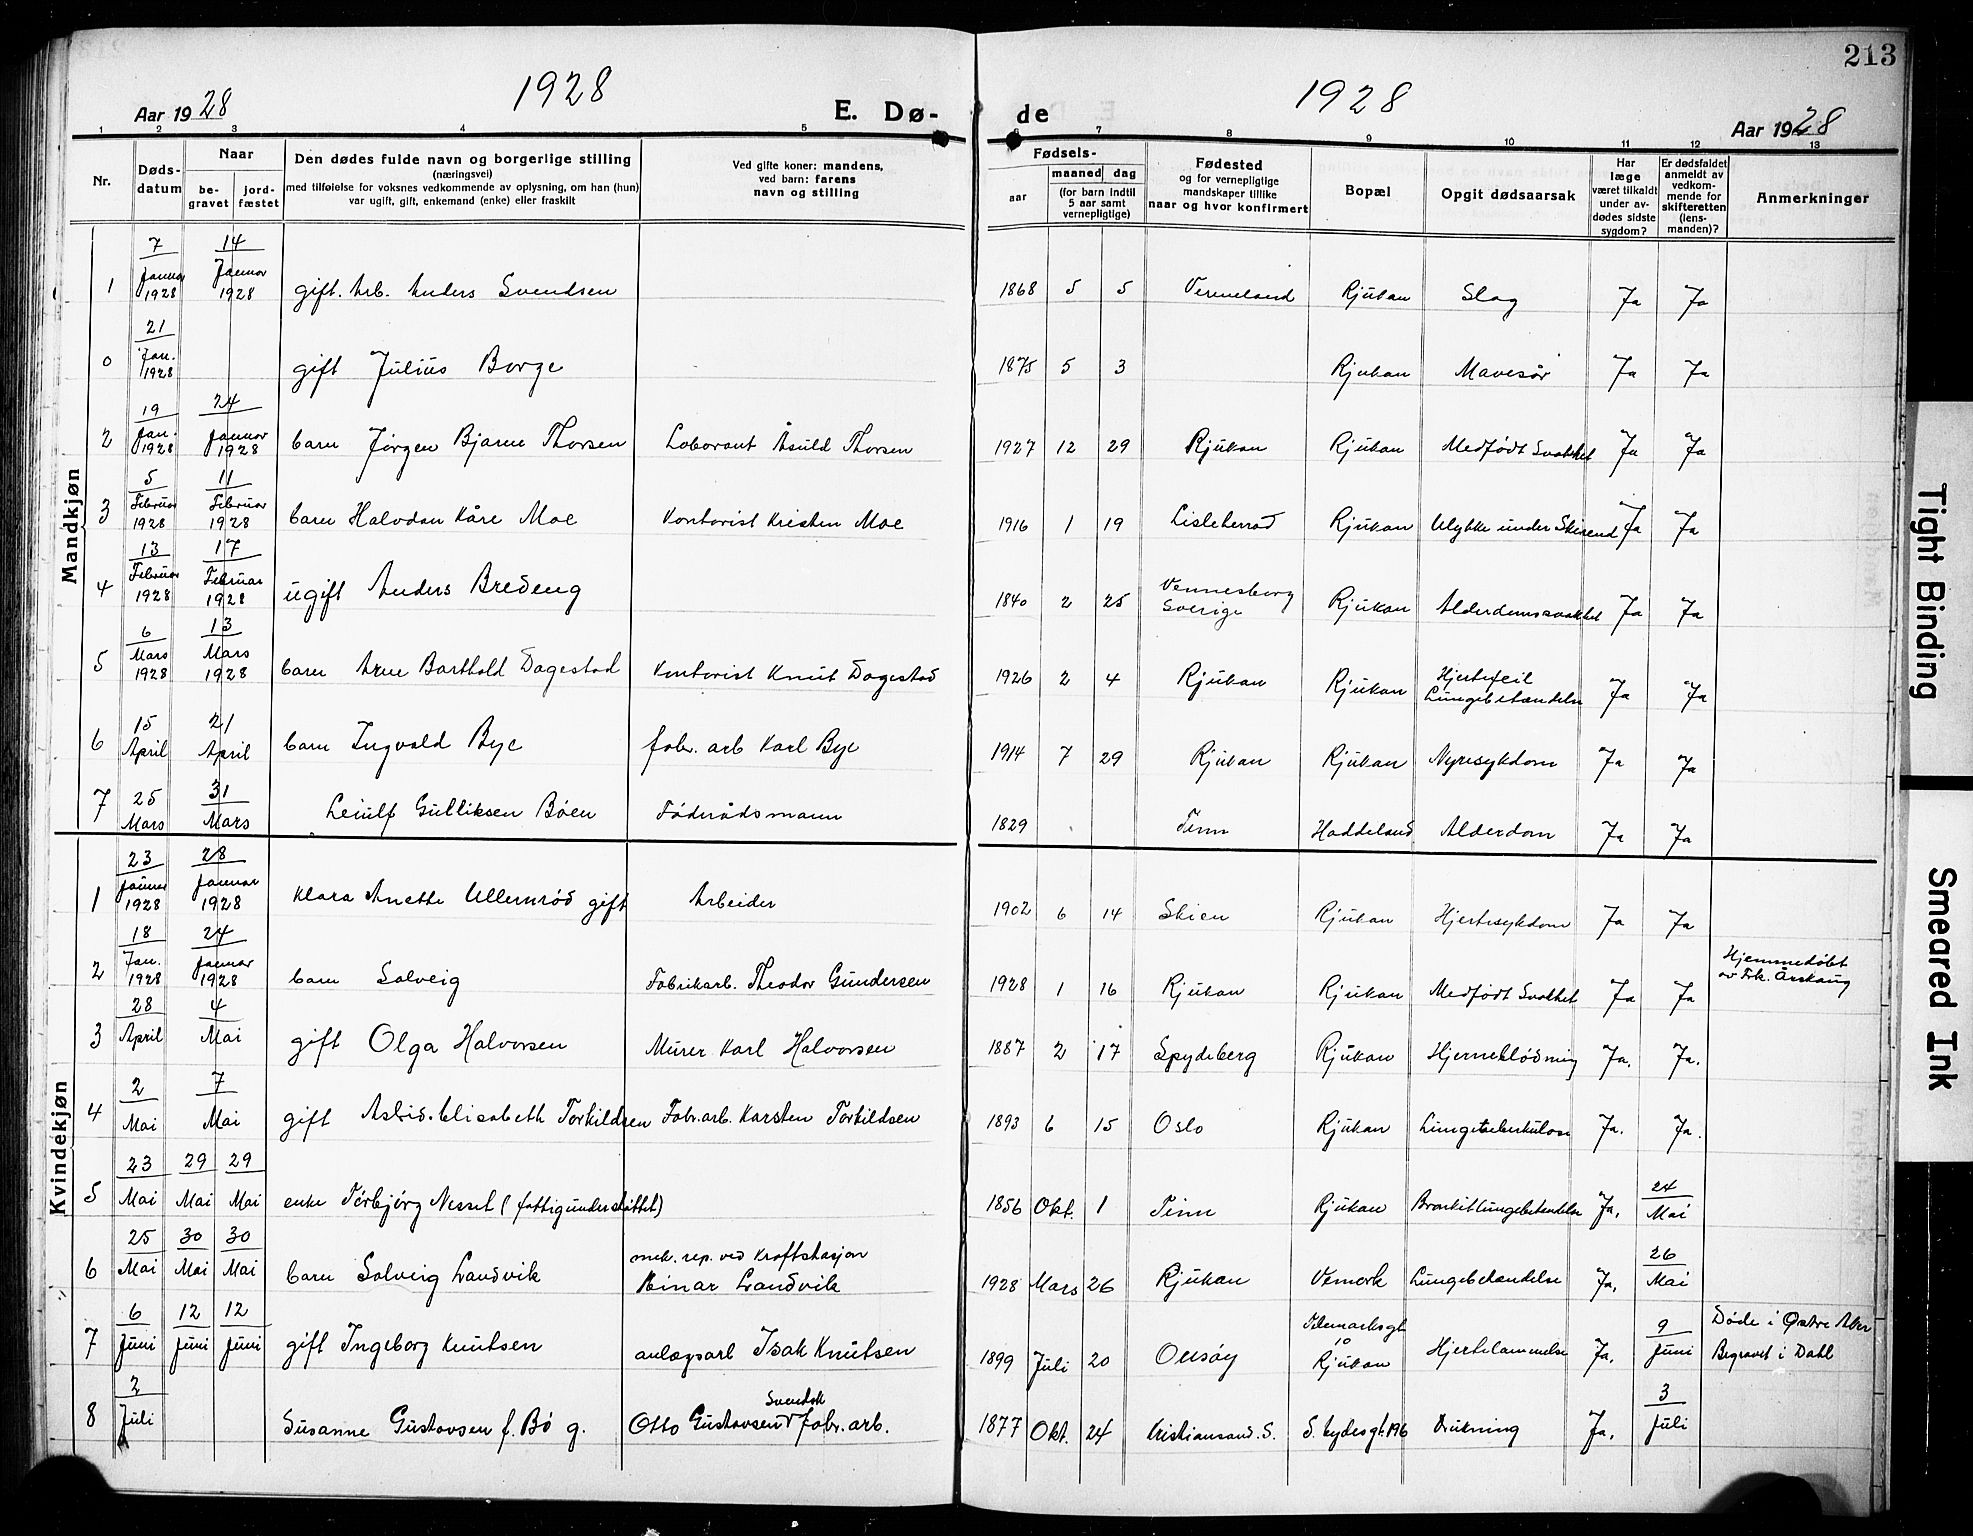 213
1928
1928
Aar 1928
E. Dø-
de
Aar 1928
1 2 3 4 5 6 7 8 9 10 11 12 13
Nr.
Døds-
datum
Naar
be-
gravet
jord-
fæstet
Den dødes fulde navn og borgerlige stilling
(næringsvei)
med tilføielse for voksnes vedkommende av oplysning, om han (hun)
var ugift, gift, enkemand (enke) eller fraskilt
Ved gifte koner: mandens,
ved barn: farens
navn og stilling
Fødsels-
aar
maaned dag
(for barn indtil
5 aar samt
vernepligtige)
Fødested
og for vernepligtige
mandskaper tillike
naar og hvor konfirmert
Bopæl
Opgit dødsaarsak
Har
læge
været tilkaldt
under av-
dødes sidste
sygdom?
Er dødsfaldet
anmeldt av
vedkom-
mende for
skifteretten
(lens-
manden)?
Anmerkninger
Mandkjøn
1 7 Januar 1928 14 Januar 1928 gift. Arb. Anders Svendsen 1868 5 5 Vermeland Rjukan Slag Ja Ja
0 21 Jan. 1928 gift Julius Borge 1875 5 3 Rjukan Mavesår Ja Ja
2 19 Jan. 1928 24 Januar 1928 barn Jørgen Bjarne Thorsen Laborant Åsuld Thorsen 1927 12 29 Rjukan Rjukan Medfødt Svakhet Ja Ja
3 5 Februar 1928 11 Februar 1928 barn Halvdan Kåre Moe Kontorist Kristen Moe 1916 1 19 Lisleherrad Rjukan Ulykke under Skirend Ja Ja
4 13 Februar 1928 17 Februar 1928 ugift Anders Bredeng 1840 2 25 Vennesborg Sverige Rjukan Alderdomssvakhet Ja Ja
5 6 Mars 1928 13 Mars 1928 barn Arne Barthold Dagestad Kontorist Knut Dagestad 1926 2 4 Rjukan Rjukan Hjertefeil Lungebetændelse Ja Ja
6 15 April 21 April barn Ingvald Bye fabr. arb Karl Bye 1914 7 29 Rjukan Rjukan Nyresykdom Ja Ja
7 25 Mars 31 Mars Leiulf Gulliksen Bøen Føderådsmann 1829 Tinn Haddeland Alderdom Ja Ja
Kvindekjøn
1 23 Januar 1928 28 Januar 1928 Klara Anette Ullernrød gift Arbeider 1902 6 14 Skien Rjukan Hjertesykdom Ja Ja
2 18 Jan. 1928 24 Januar 1928 barn Solveig Fabrikarb. Theodor Gundersen 1928 1 16 Rjukan Rjukan Medfødt Svakhet Ja Ja Hjemmedøbt av Frk. Årskaug
3 28 April 4 Mai gift Olga Halvorsen Murer Karl Halvorsen 1887 2 17 Spydeberg Rjukan Hjerneblødning Ja. Ja.
4 2 Mai 7 Mai gift Astrid. Elisabeth Torkildsen Fabr.arb. Karsten Torkildsen 1893 6 15 Oslo Rjukan Lungetuberkulose Ja. Ja.
5 23 Mai 29 Mai 29 Mai enke Torbjørg Nesset (fattigunderstøttet) 1856 Okt. 1 Tinn Rjukan Bronkit Lungebetendelse Ja, 24 Mai
6 25 Mai 30 Mai 30 Mai barn Solveig Landvik mek. rep. ved Kraftstasjon Einar Landvik 1928 Mars 26 Rjukan Vemork Lungebetændelse Ja, 26 Mai
7 6 Juni 12 Juni 12 Juni gift Ingeborg Knutsen anlægsarb Isak Knutsen 1899 Juli 20 Onsøy Telemarksgt 10 Rjukan Hjertelammelse Ja, 9 Juni Døde i Østre Aker Begravet i Dahl
8 2 Juli Susanne Gustavsen f. Bø g. Otto Gustavsen Svendsk fabr. arb. 1877 Okt. 24 Kristiansand. S. S. Eydesgt. 196 Drukning Ja, 3 Juli
Tight Binding
Smeared Ink